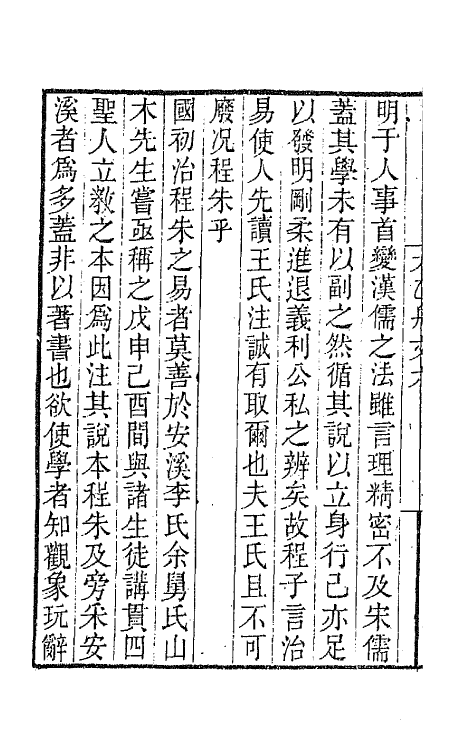 明于人事首變漢儒之法雖言理精密不及宋儒
蓋其學未有以副之然循其說以立身行己亦足
以發明剛柔進退義利公私之辨矣故程子言治
易使人先讀王氏注誠有取爾也夫王氏且不可
廢况程朱乎
國初治程朱之易者莫善於安溪李氏余舅氏山
木先生嘗亟稱之戊申己酉間與諸生徒講貫四
聖人立敎之本因爲此注其說本程朱及旁采安
溪者爲多蓋非以著書也欲使學者知觀象玩辭